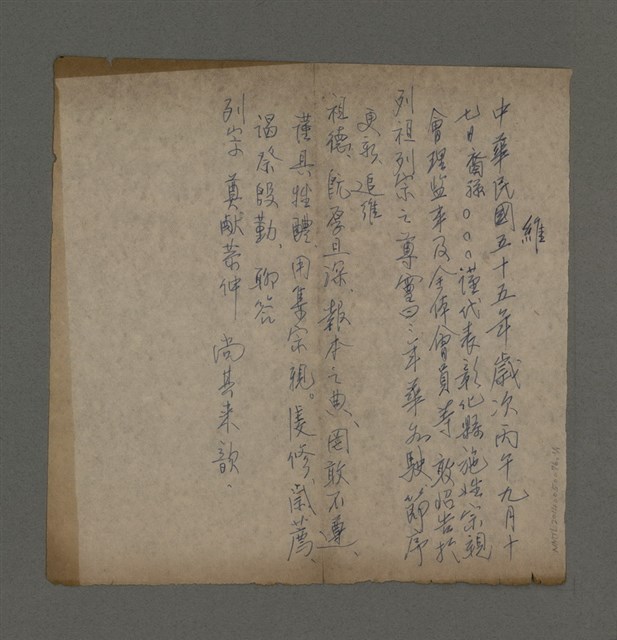 維
中華民國五十五年歲次丙午九月十
七日裔孫○○○謹代表彰化縣施姓宗親
會理監事及全体會員等敢昭告於
列祖列宗之尊靈曰：年華如駛、節序
更新、追維
祖德、既厚且深、報本之典、罔敢不遵、
謹具牲醴、用集宗親。虔修、歲薦、
謁祭殷勤、聊答
列宗 奠献萊仲 尚其來歆、